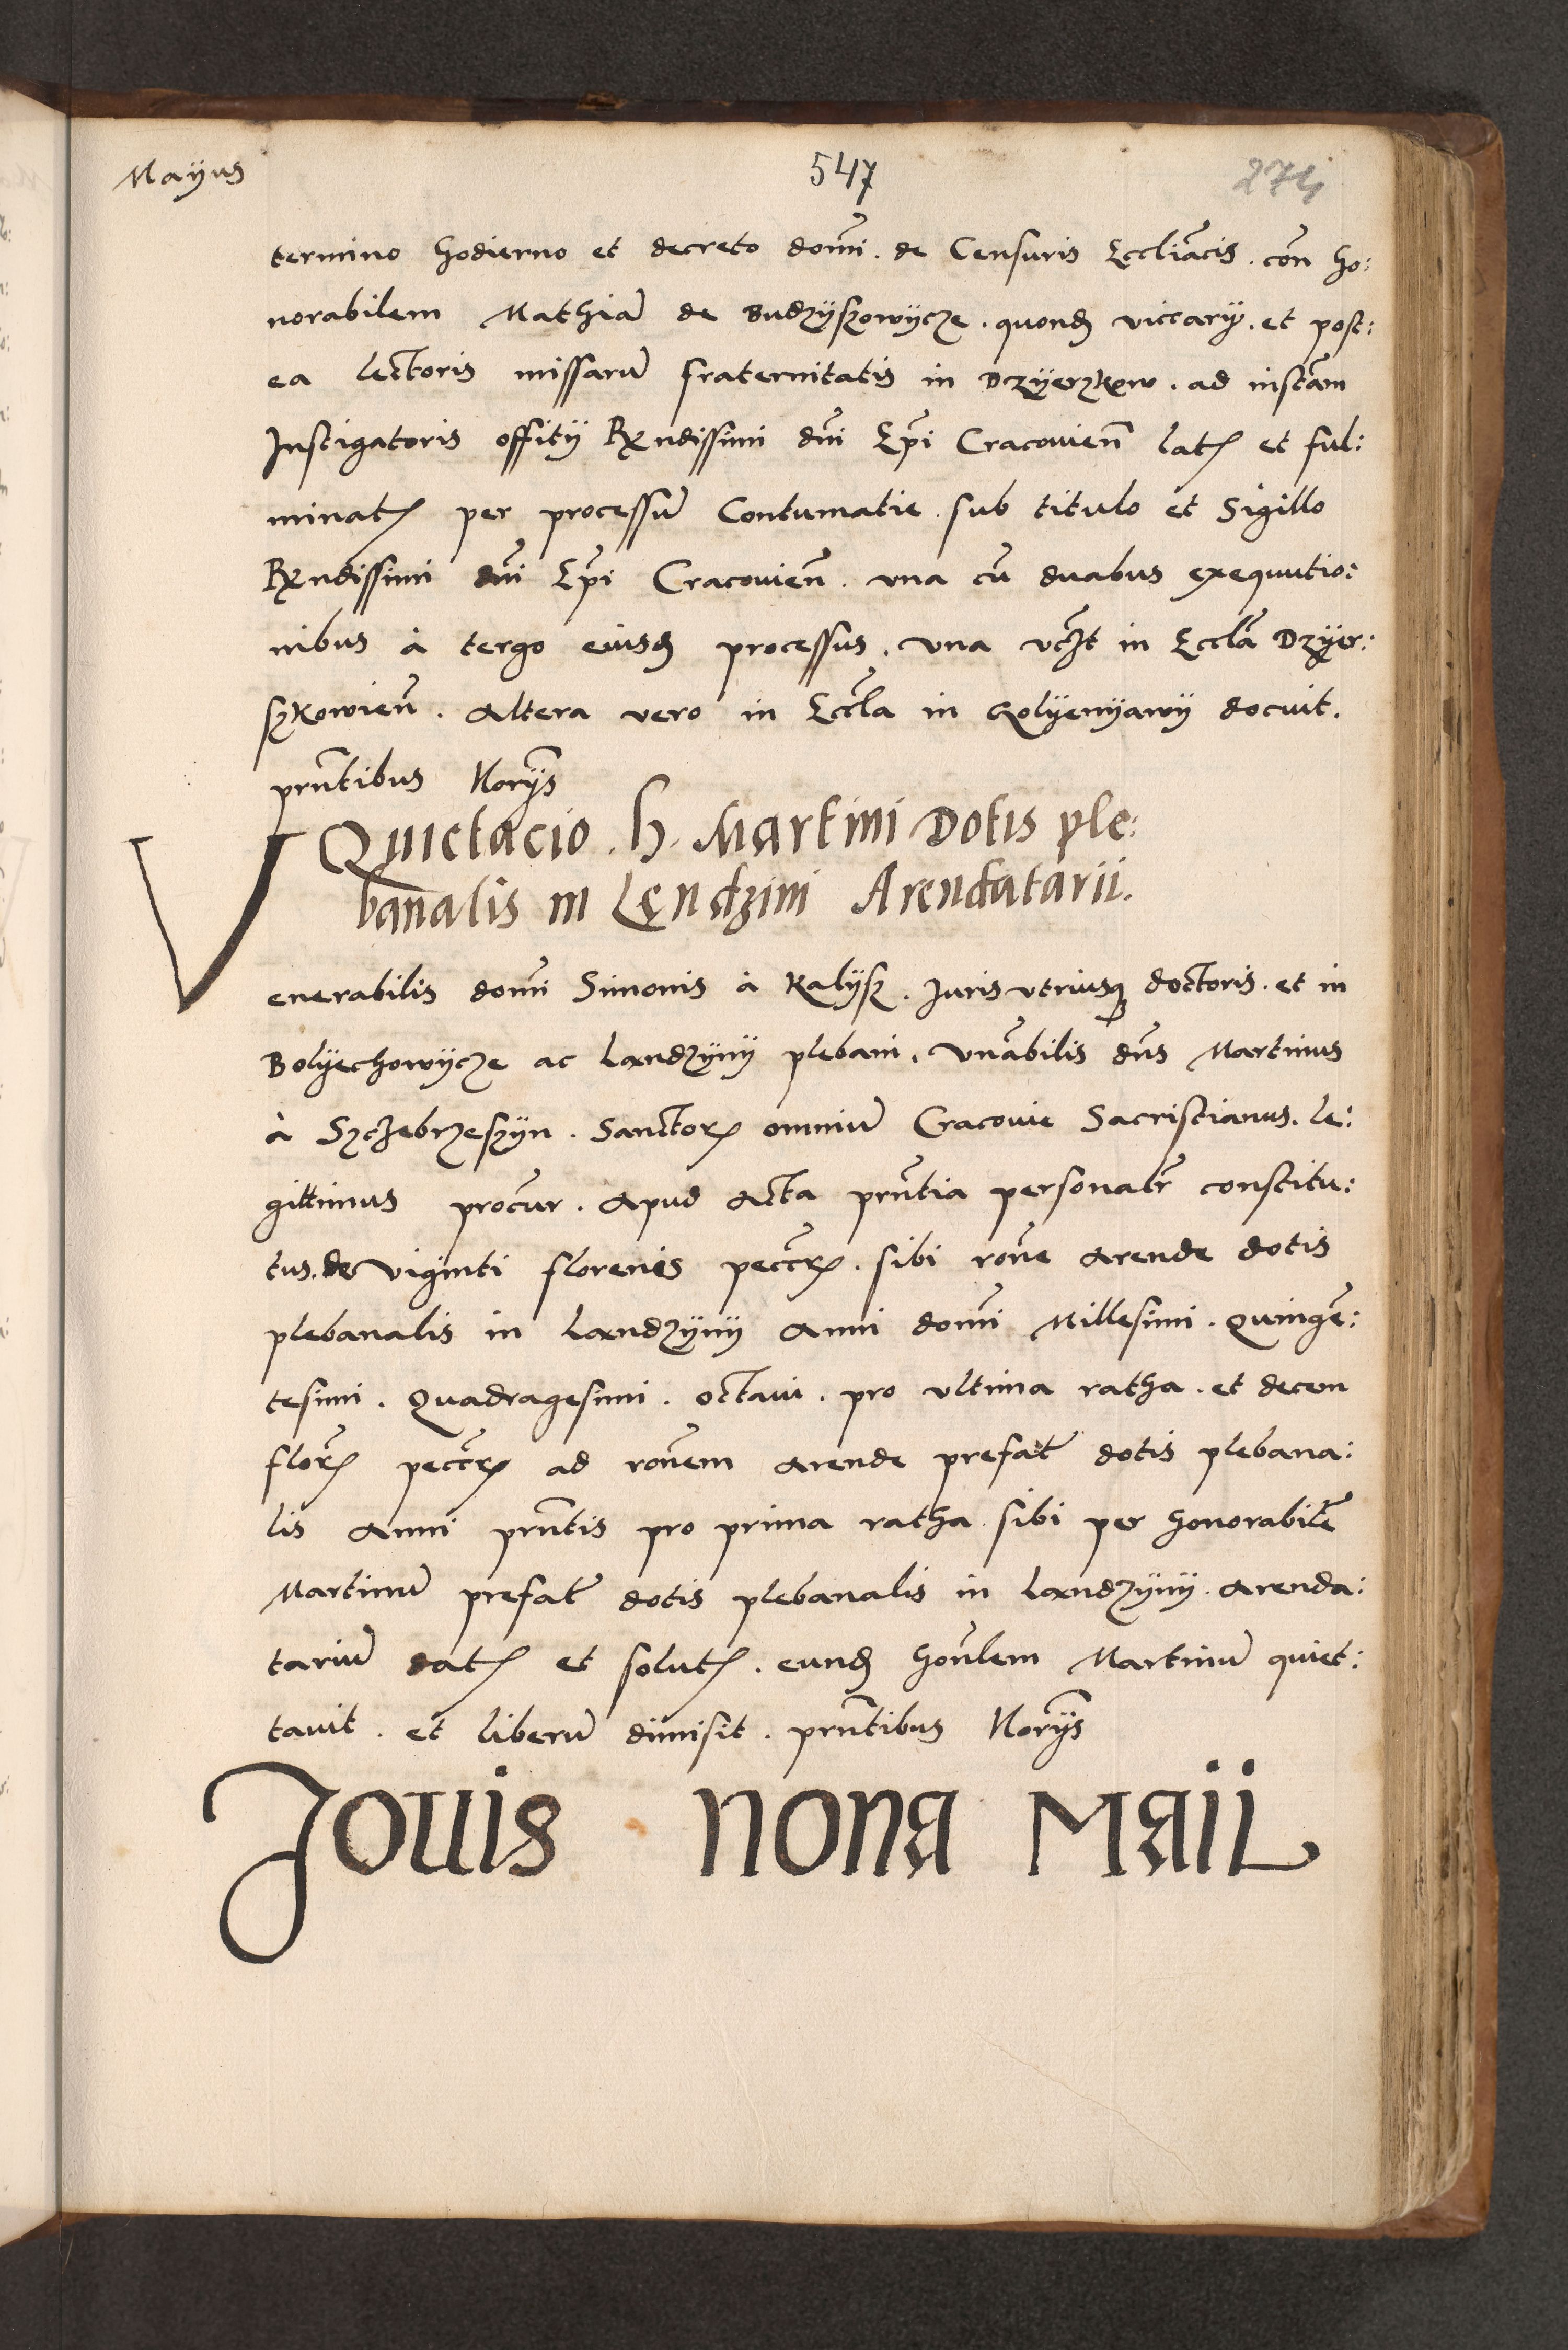 Mayus
547
274
termino hodierno et decreto domi . de Censuris Eccliacis . con ho:
norabilem Mathia de Budzyszowycze . quond viccary . et post:
ea lectoris missaru fraternitatis in Dzyerzkow . ad instam
Instigatoris offity Rndissimi dni Epi Cracovien lat et ful:
minat per processu Contumatie . sub titulo et Sigillo
Rndissimi dni Epi Cracovien . una cu duabus exequutio:
nibus à tergo eiusd processus . una vczt in Eccla Dzyer:
szkowien . altera vero in Eccla in Golyenyawy docuit .
prntibus Norys
Quictacio . h . Martini Dotis ple:
banalis in Lendzini Arendatarii .
Venerabilis domi Simonis à Kalysz . Juris utriusq doctoris . et in
Bolyechowycze ac Landzyny plebani . Vnabilis dns Martinus
à Szczebrzeszyn . Sanctor omniu Cracovie Sacristianus . le:
gittimus procur . apud acta prntia personalr constitu:
tus . de viginti florenis peccr . sibi rone arende dotis
plebanalis in Landzyny anni domi Millesimi . Quinge:
tesimi . Quadragesimi . octavi . pro ultima ratha . et decem
flor peccr ad ronem arende prefat dotis plebana:
lis anni prntis pro prima ratha . sibi per honorabile
Martinu prefat dotis plebanalis in Landzyny . arenda:
tariu dat et solut . eund honlem Martinu quiet:
tavit . et liberu dimisit . prntibus Norys
Jovis nona Maii